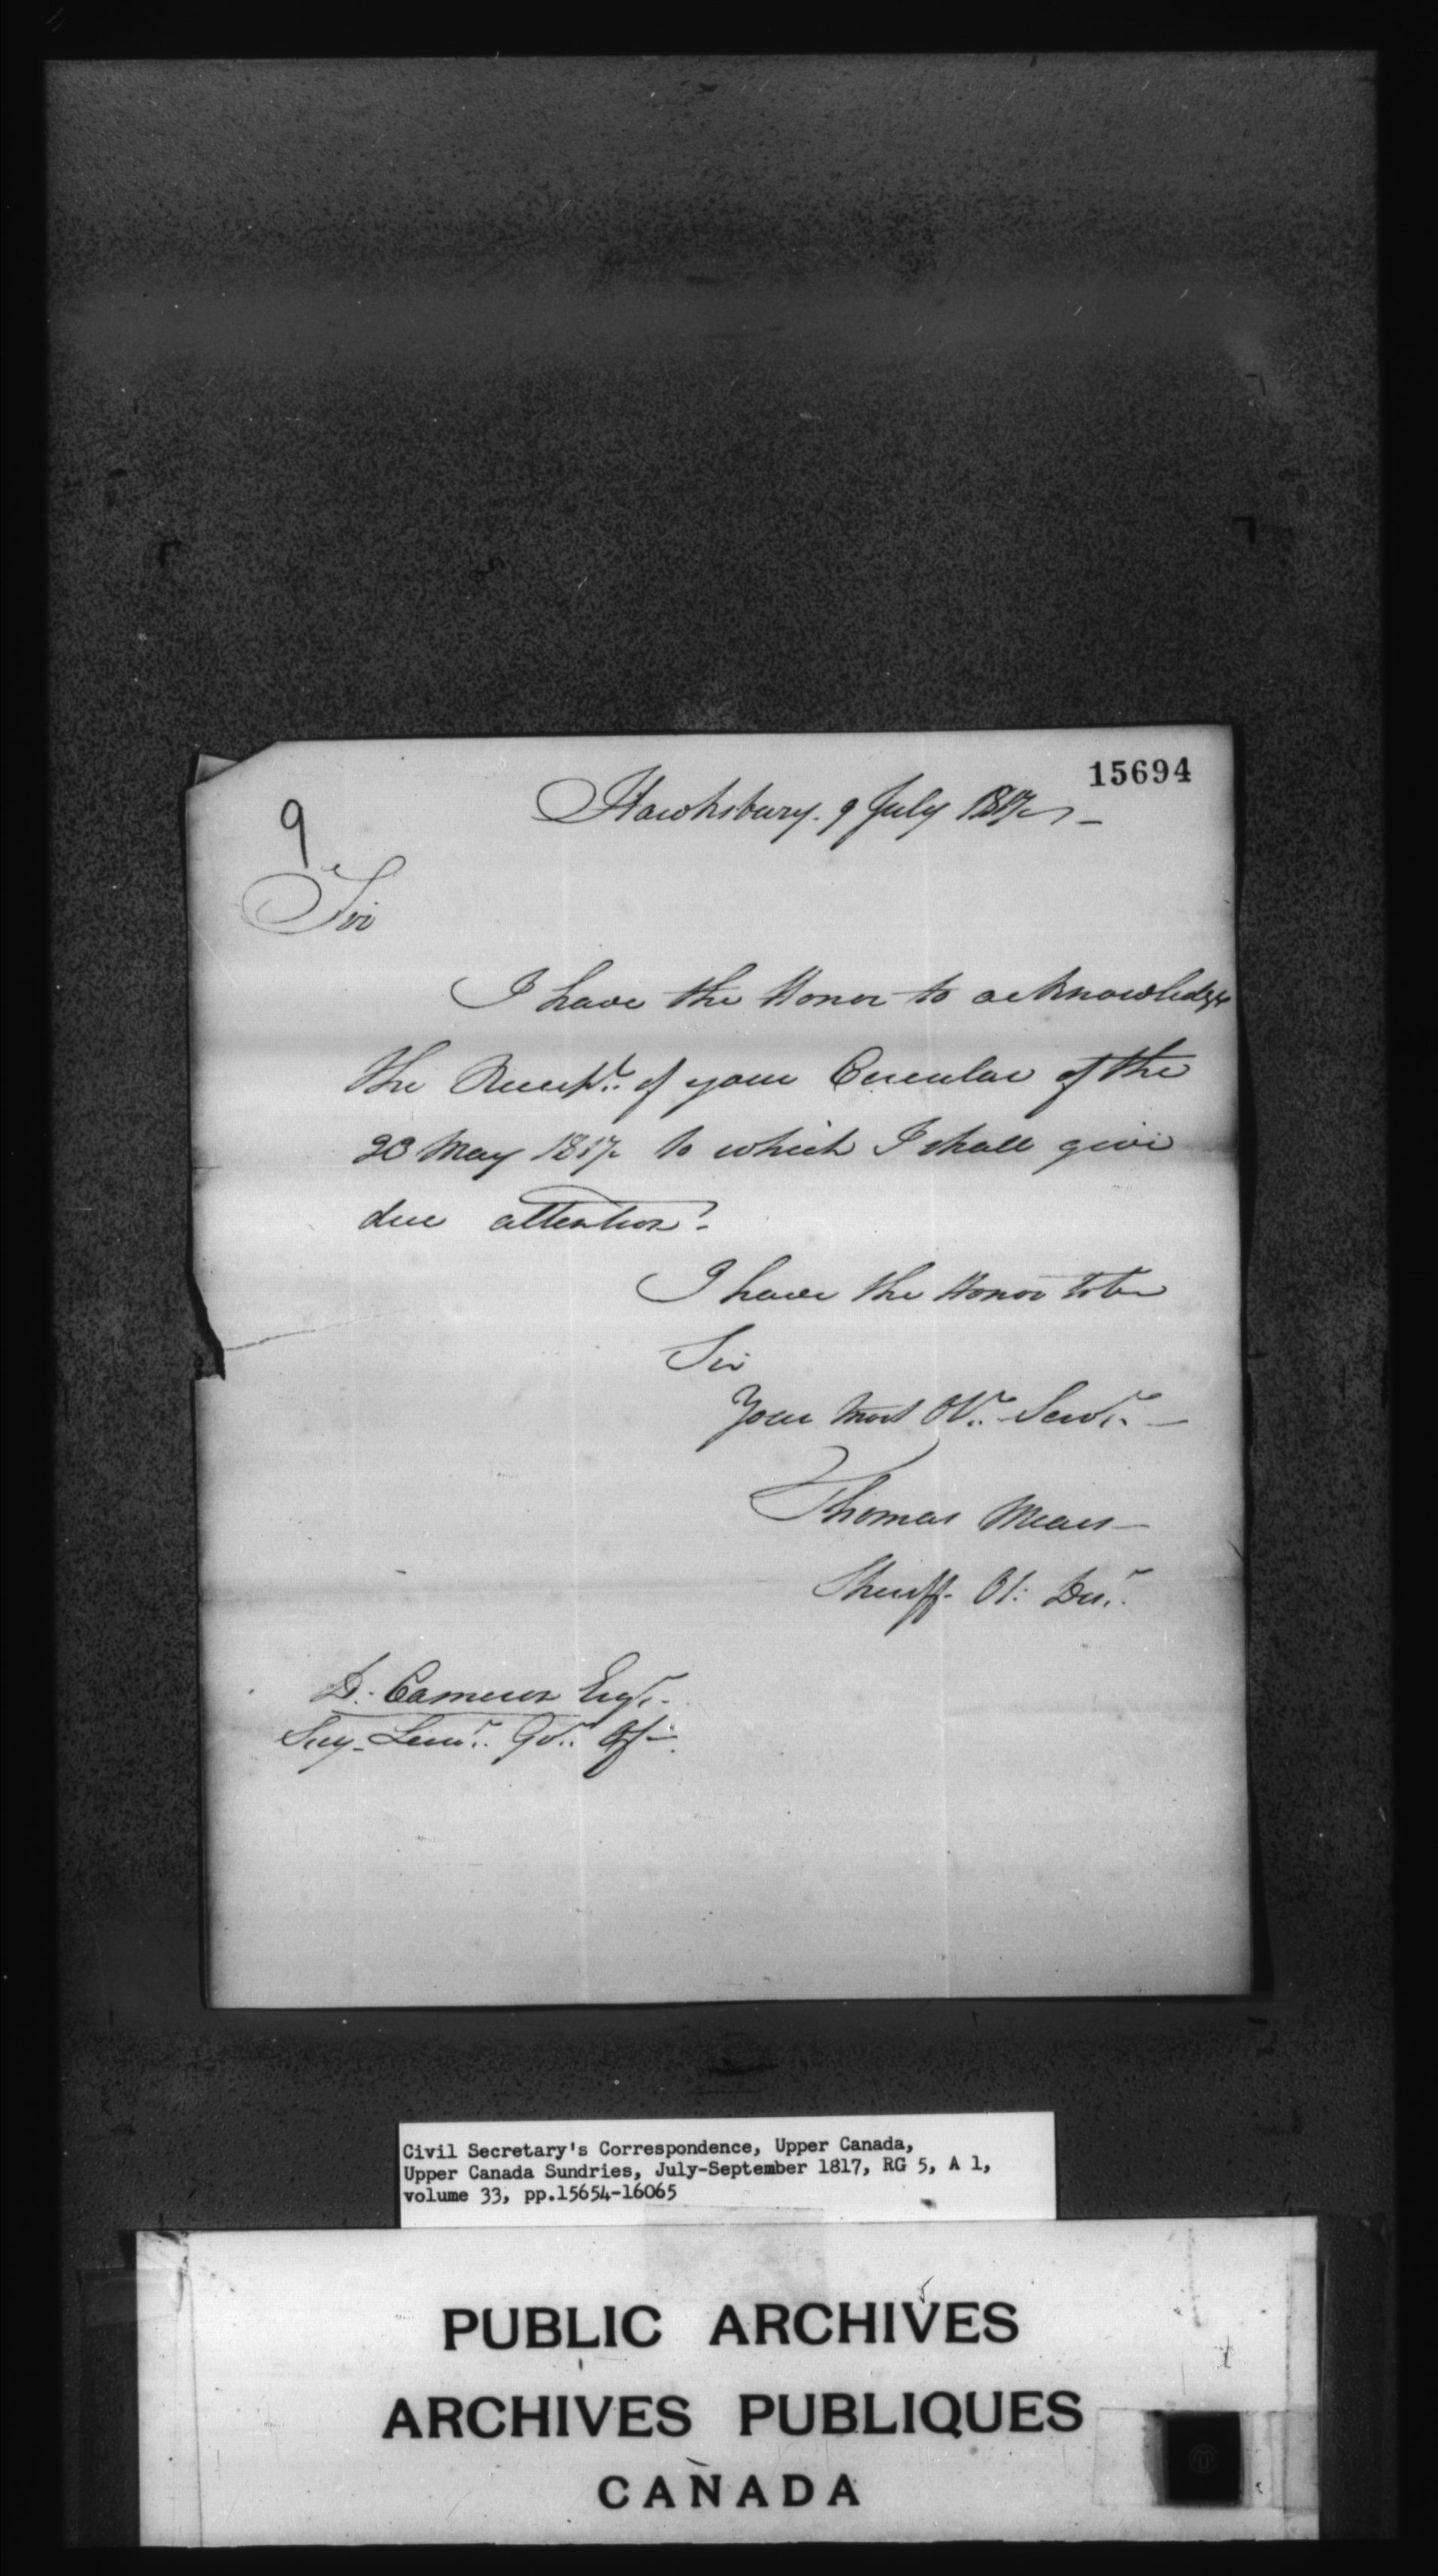 15694
Hawksbury. 9 July 1817 -
9
Sir
I have the Honor to acknowledge
the Receipt. of your Circular of the
23 May 1817 to which I shall give
due attention.
I have the Honor to be
Sir
Your Most Ob.t Serv.t -
Thomas Mears
Sheriff Ot: Dis.t
D. Cameron Esq.r
Secy. Lieu.t Gov.r
Civil Secretary's Correspondence, Upper Canada,
Upper Canada Sundries, July-September 1817, RG 5, A 1,
volume 33, pp.15654-16065
PUBLIC ARCHIVES
ARCHIVES PUBLIQUES
CANADA